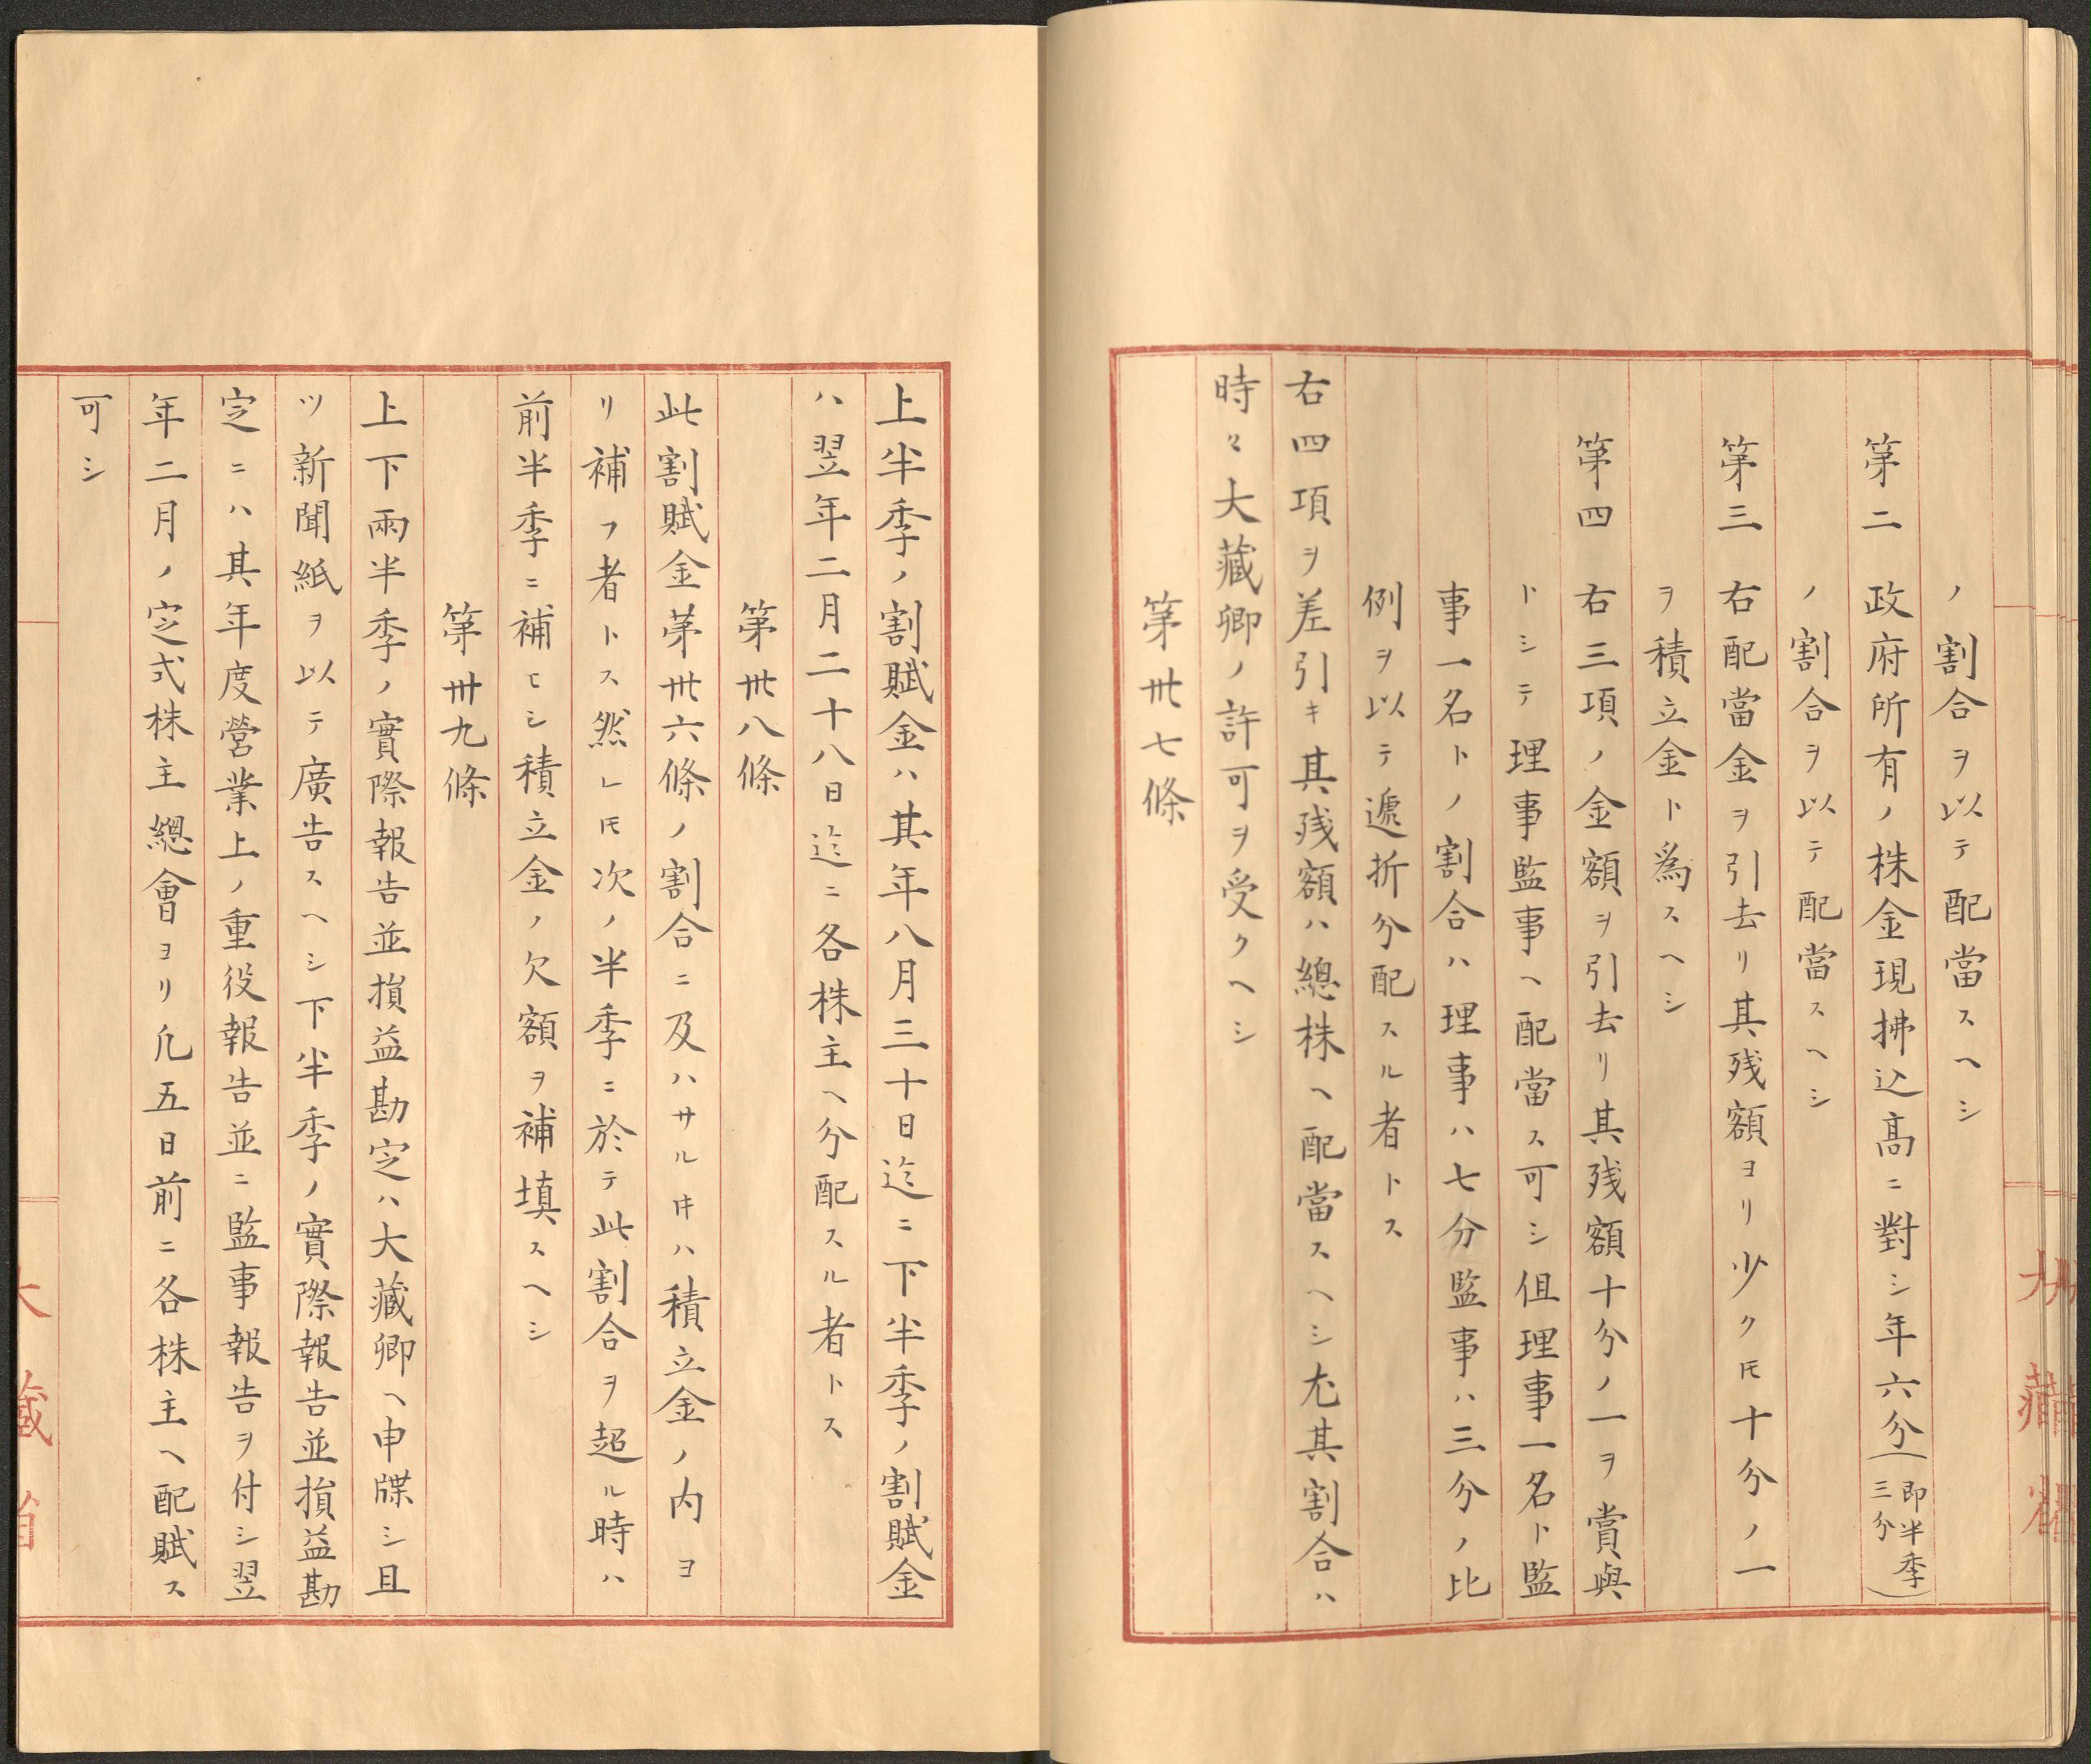 ノ割合ヲ以テ配當スヘシ
第二 政府所有ノ株金現拂込高ニ對シ年六分(即半季三分)
ノ割合ヲ以テ配當スヘシ
第三 右配當金ヲ引去リ其残額ヨリ少クトモ十分ノ一
ヲ積立金ト為スヘシ
第四 右三項ノ金額ヲ引去リ其残額十分ノ一ヲ賞與
トシテ理事監事ヘ配當ス可シ但理事一名ト監
事一名トノ割合ハ理事ハ七分監事ハ三分ノ比
例ヲ以テ遞折分配スル者トス
右四項ヲ差引キ其残額ハ總株ヘ配當スヘシ尤其割合ハ
時々大藏卿ノ許可ヲ受クヘシ
第丗七條
上半季ノ割賦金ハ其年八月三十日迄ニ下半季ノ割賦金
ハ翌年二月二十八日迄ニ各株主ヘ分配スル者トス
第丗八條
此割賦金第丗六條ノ割合ニ及ハサル㕝ハ積立金ノ内ヨ
リ補フ者トス然レ𪜈次ノ半季ニ於テ此割合ヲ超ル時ハ
前半季ニ補ヒシ積立金ノ欠額ヲ補填スヘシ
第丗九條
上下兩半季ノ實際報告並損益勘定ハ大藏卿ヘ申牒シ且
ツ新聞紙ヲ以テ廣告スヘシ下半季ノ實際報告並損益勘
定ニハ其年度營業上ノ重役報告並ニ監事報告ヲ付シ翌
年二月ノ定式株主總會ヨリ凡五日前ニ各株主ヘ配賦ス
可シ
大藏省